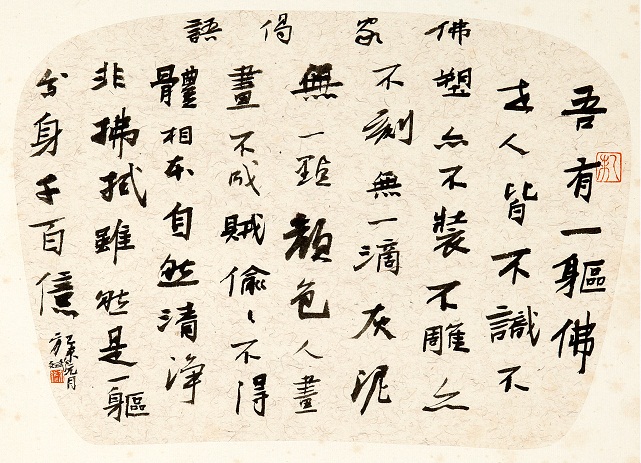 佛家偈語
吾有一軀佛
世人皆不識不
塑亦不裝不雕亦
不刻無一滴灰泥
無一點顏色人畫
畫不成賊偷〻不得
體相本自然清淨
非拂拭雖然是一軀
分身千百億